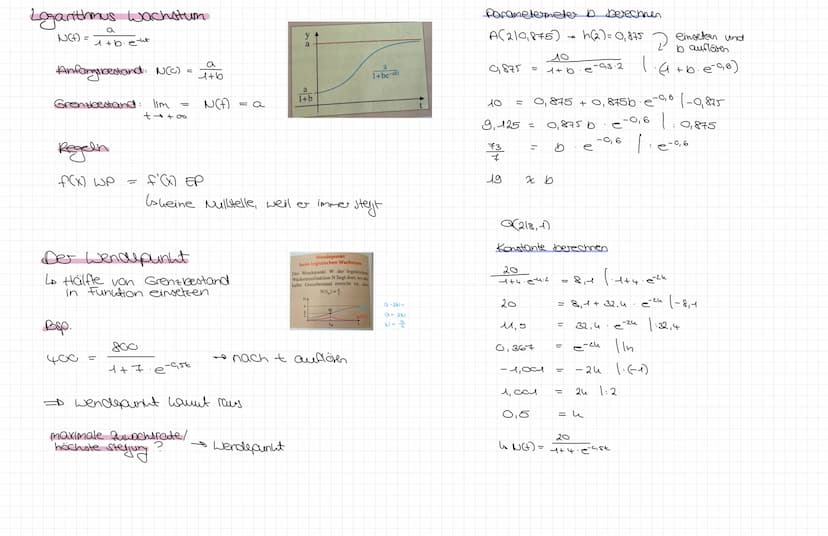 Logarithmus Wachstum
N(t) = a / 1+b·e^-kt
Anfangsbestand: N(0) = a / 1+b
Grenzbestand: lim t→+∞ = N(t) = a
y
a
a / 1+be^-kt
a / 1+b
t
Regeln
f(x) WP = f'(x) EP
↳ keine Nullstelle, weil er immer steigt
Der Wendepunkt
↳ Hälfte von Grenzbestand
in Funktion einsetzen
Wendepunkt
beim logistischen Wachstum
Der Wendepunkt W der logistischen
Bsp.
400 = 800 / 1+7·e^-0,5t → nach t auflösen
⇒ Wendepunkt kommt raus
maximale Zuwachsrate/
höchste Steigung? → Wendepunkt
Parametermeter b berechnen
A(2|0,875) → h(2) = 0,875 einsetzen und
b auflösen
0,875 = 10 / 1+b·e^-0,3·2 | ·(1+b·e^-0,6)
10 = 0,875 + 0,875b·e^-0,6 | -0,875
9,125 = 0,875b·e^-0,6 | : 0,875
73/7 = b·e^-0,6 | : e^-0,6
19 ≈ b
Q(2|8,1)
Konstante berechnen
20 / 1+4·e^-k·2 = 8,1 | ·1+4·e^-2k
20 = 8,1 + 32,4·e^-2k | -8,1
11,9 = 32,4·e^-2k | :32,4
0,367 = e^-2k | ln
-1,001 = -2k | ·(-1)
1,001 = 2k | :2
0,5 = k
↳ N(t) = 20 / 1+4·e^-0,5t